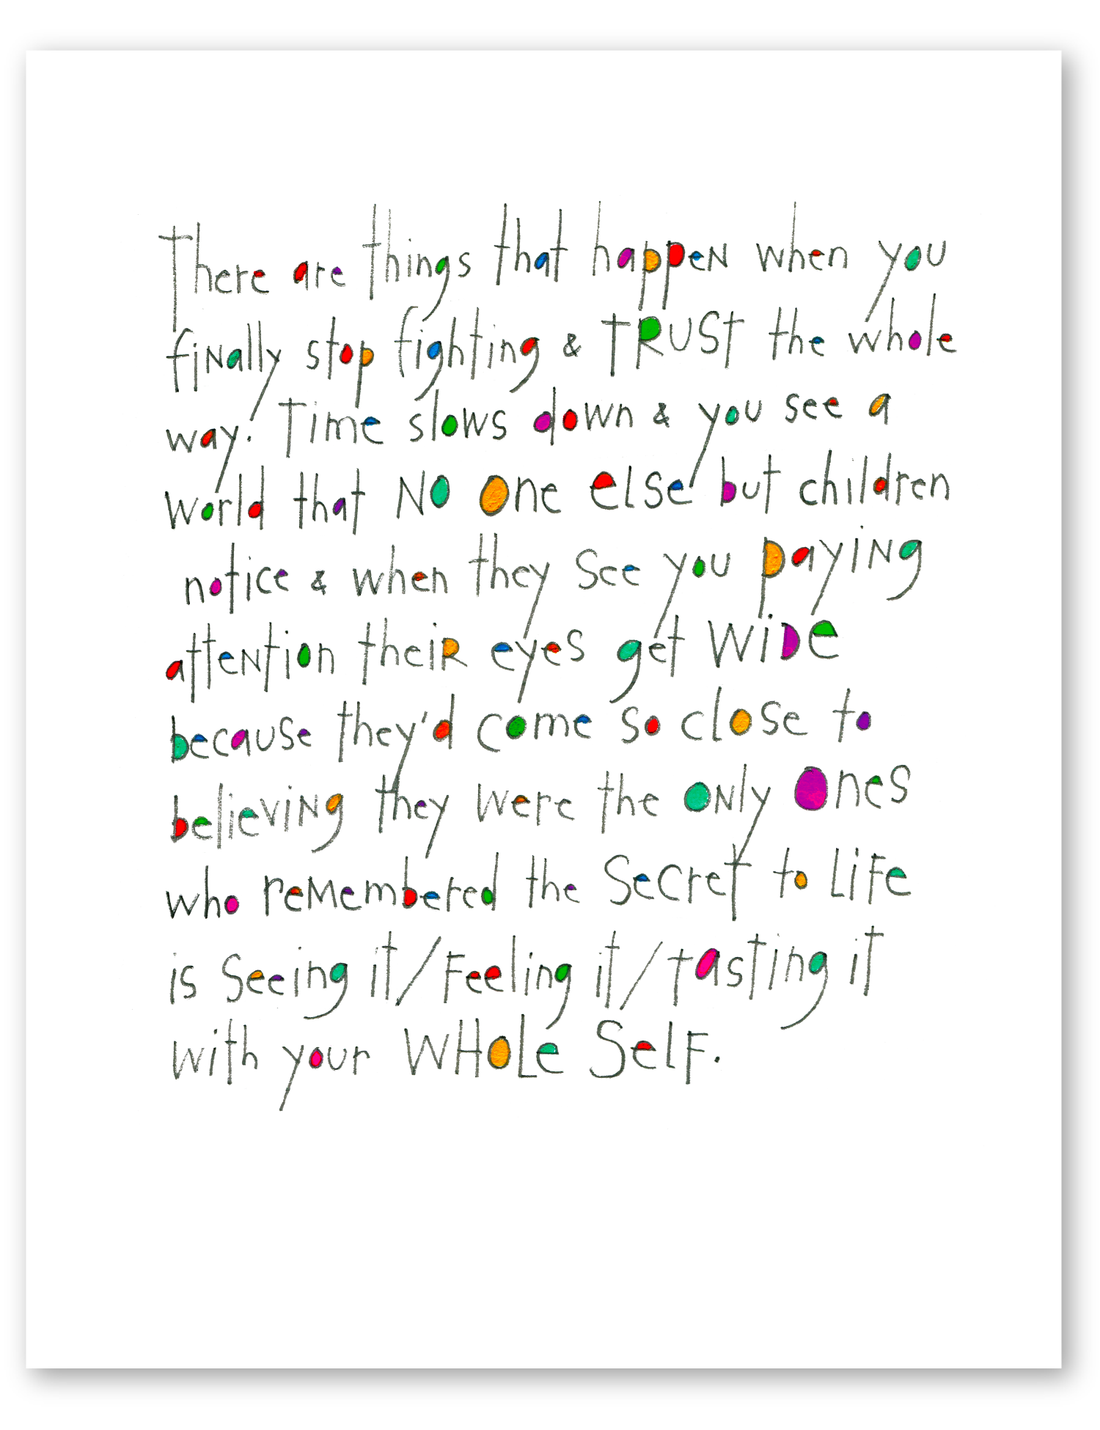 There are things that happeN when you
fiNally stop fighting & TRUST the whole
way. Time slows down & you see a
world that NO One else but children
notice & when they see you payiNg
atteNtion theiR eyes get WiDe
because they'd come so close to
believiNg they were the oNly Ones
who reMembered the SeCret to LiFe
is Seeing it/Feeling it/tasting it
with your WHOLe SelF.